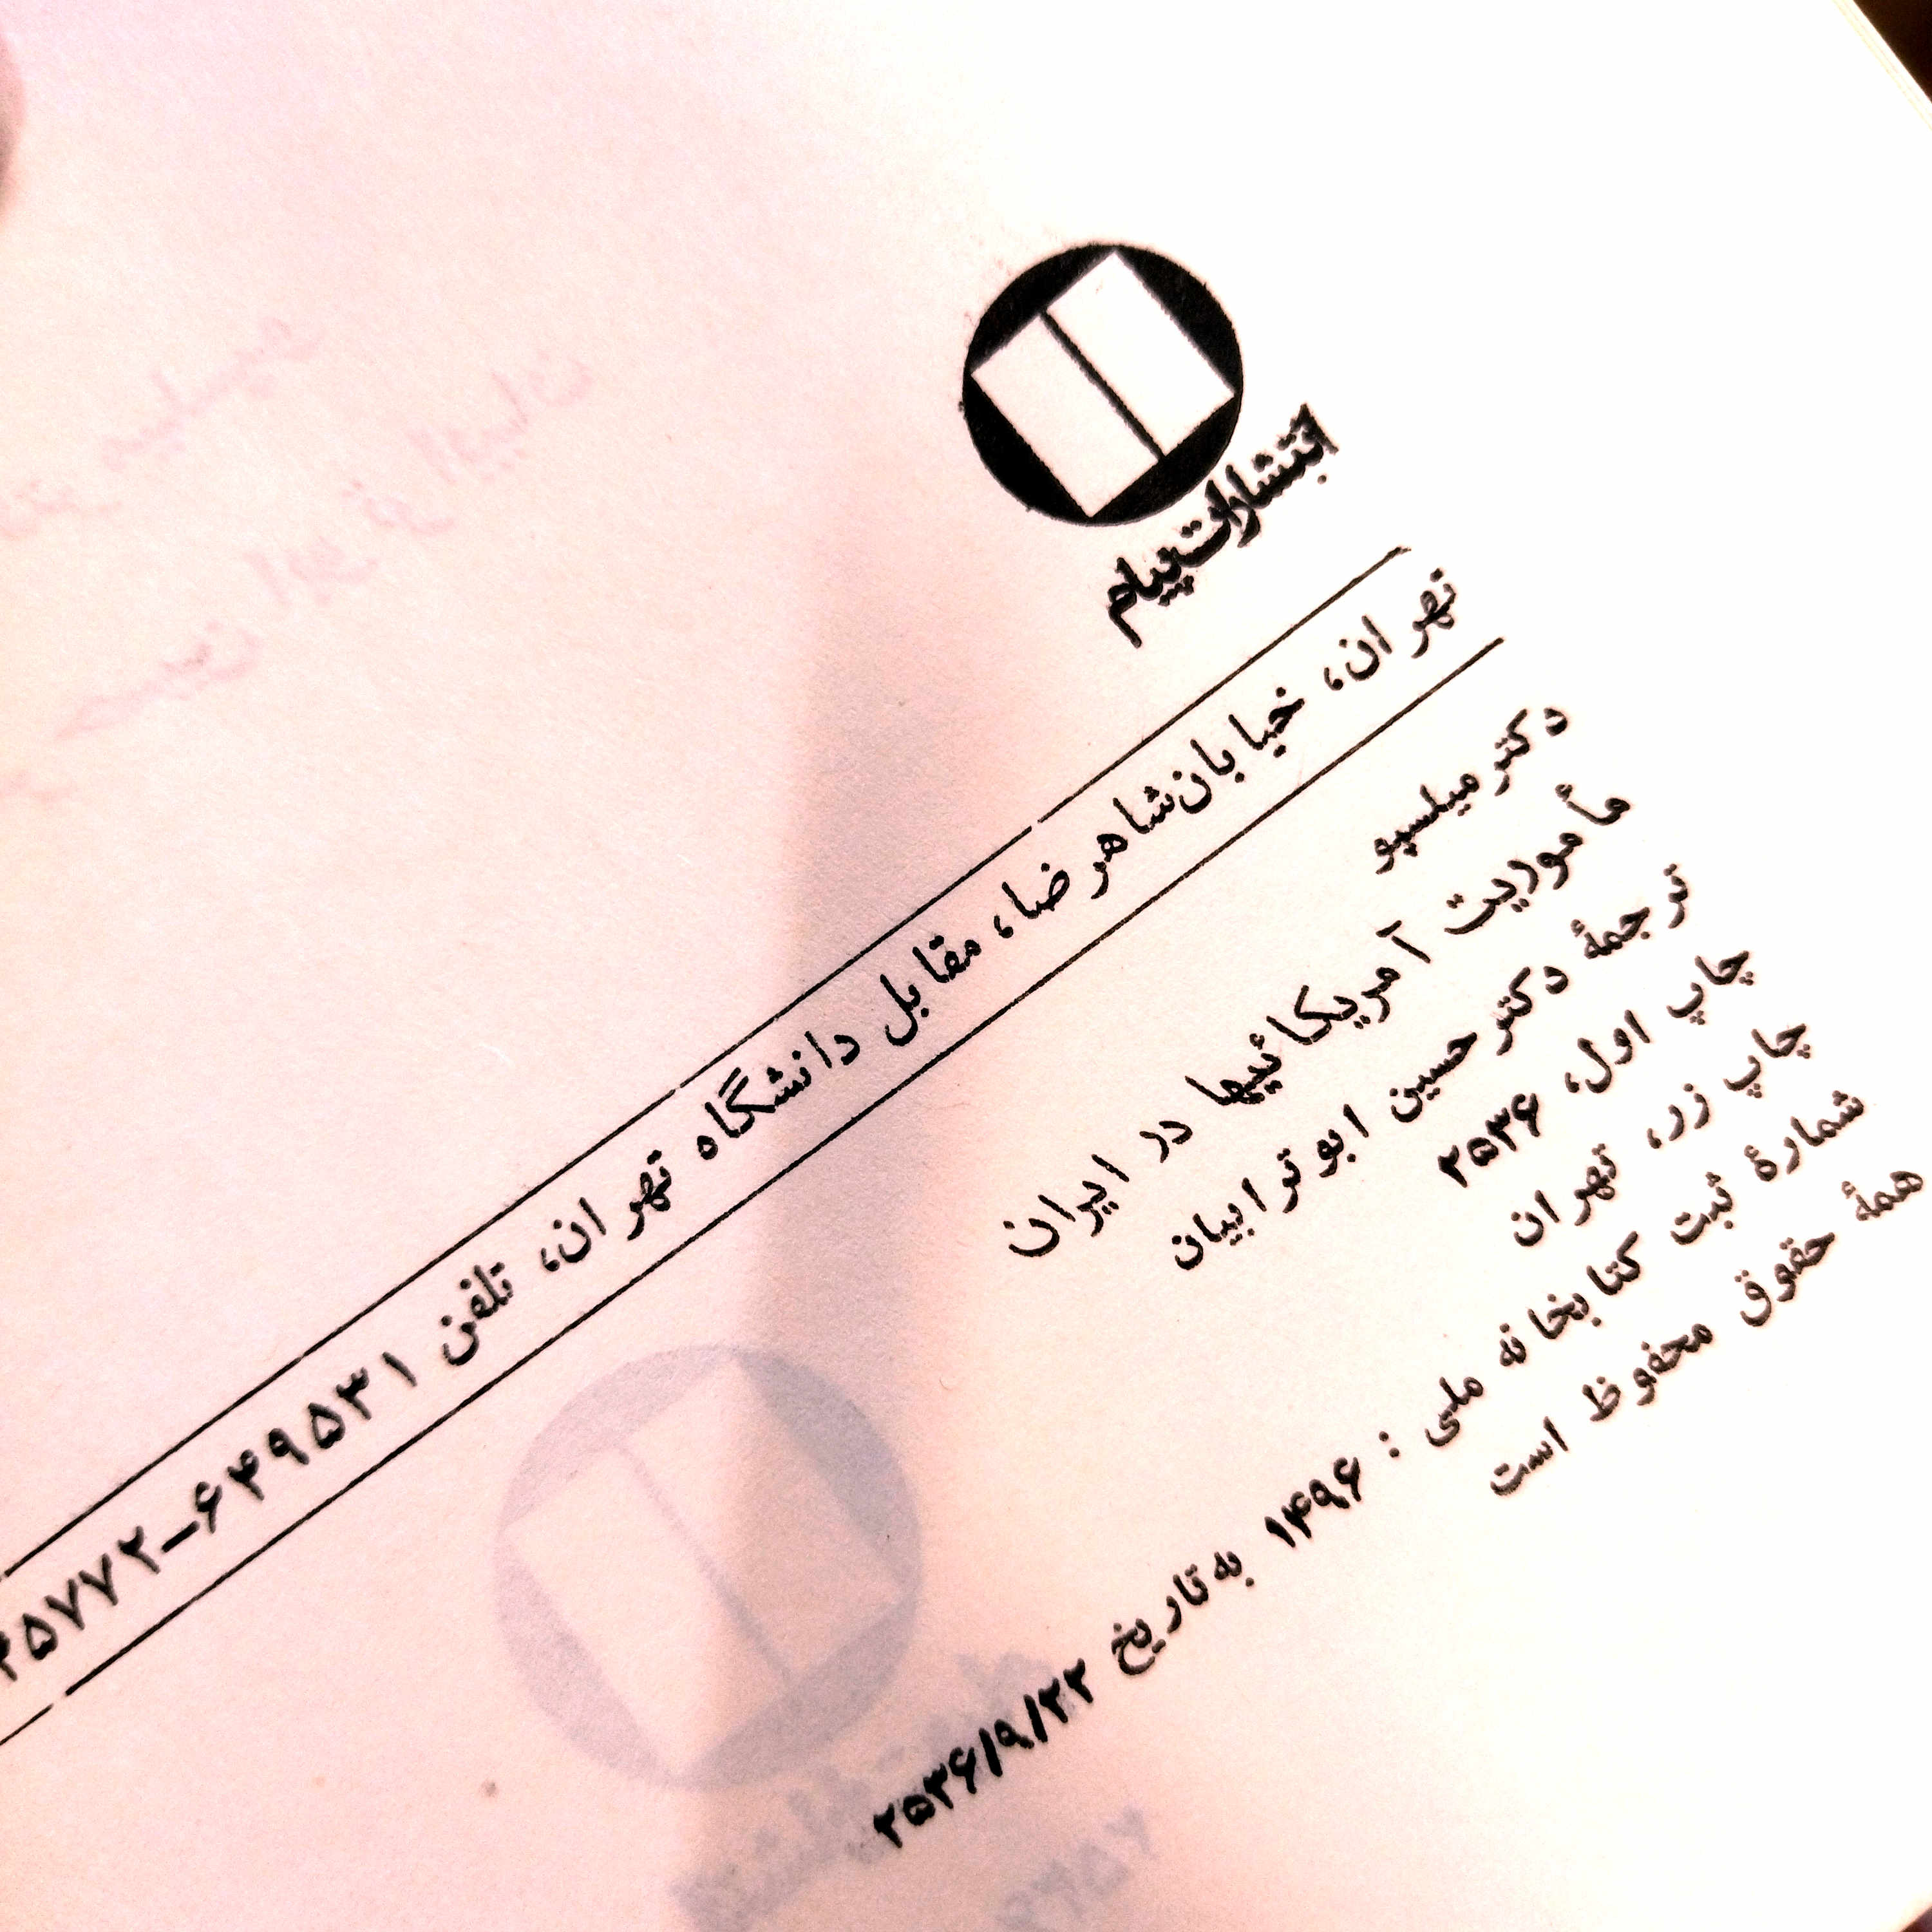 انتشارات پیام
تهران، خیابان شاهرضا، مقابل دانشگاه تهران، تلفن ۶۴۹۵۳۱-
دکتر میلسپو
مأموریت آمریکائیها در ایران
ترجمهٔ دکتر حسین ابوترابیان
چاپ اول، ۲۵۳۶
چاپ زر، تهران
شمارهٔ ثبت کتابخانه ملی : ۱۴۹۶ به تاریخ ۲۵۳۶/۹/۲۲
همهٔ حقوق محفوظ است